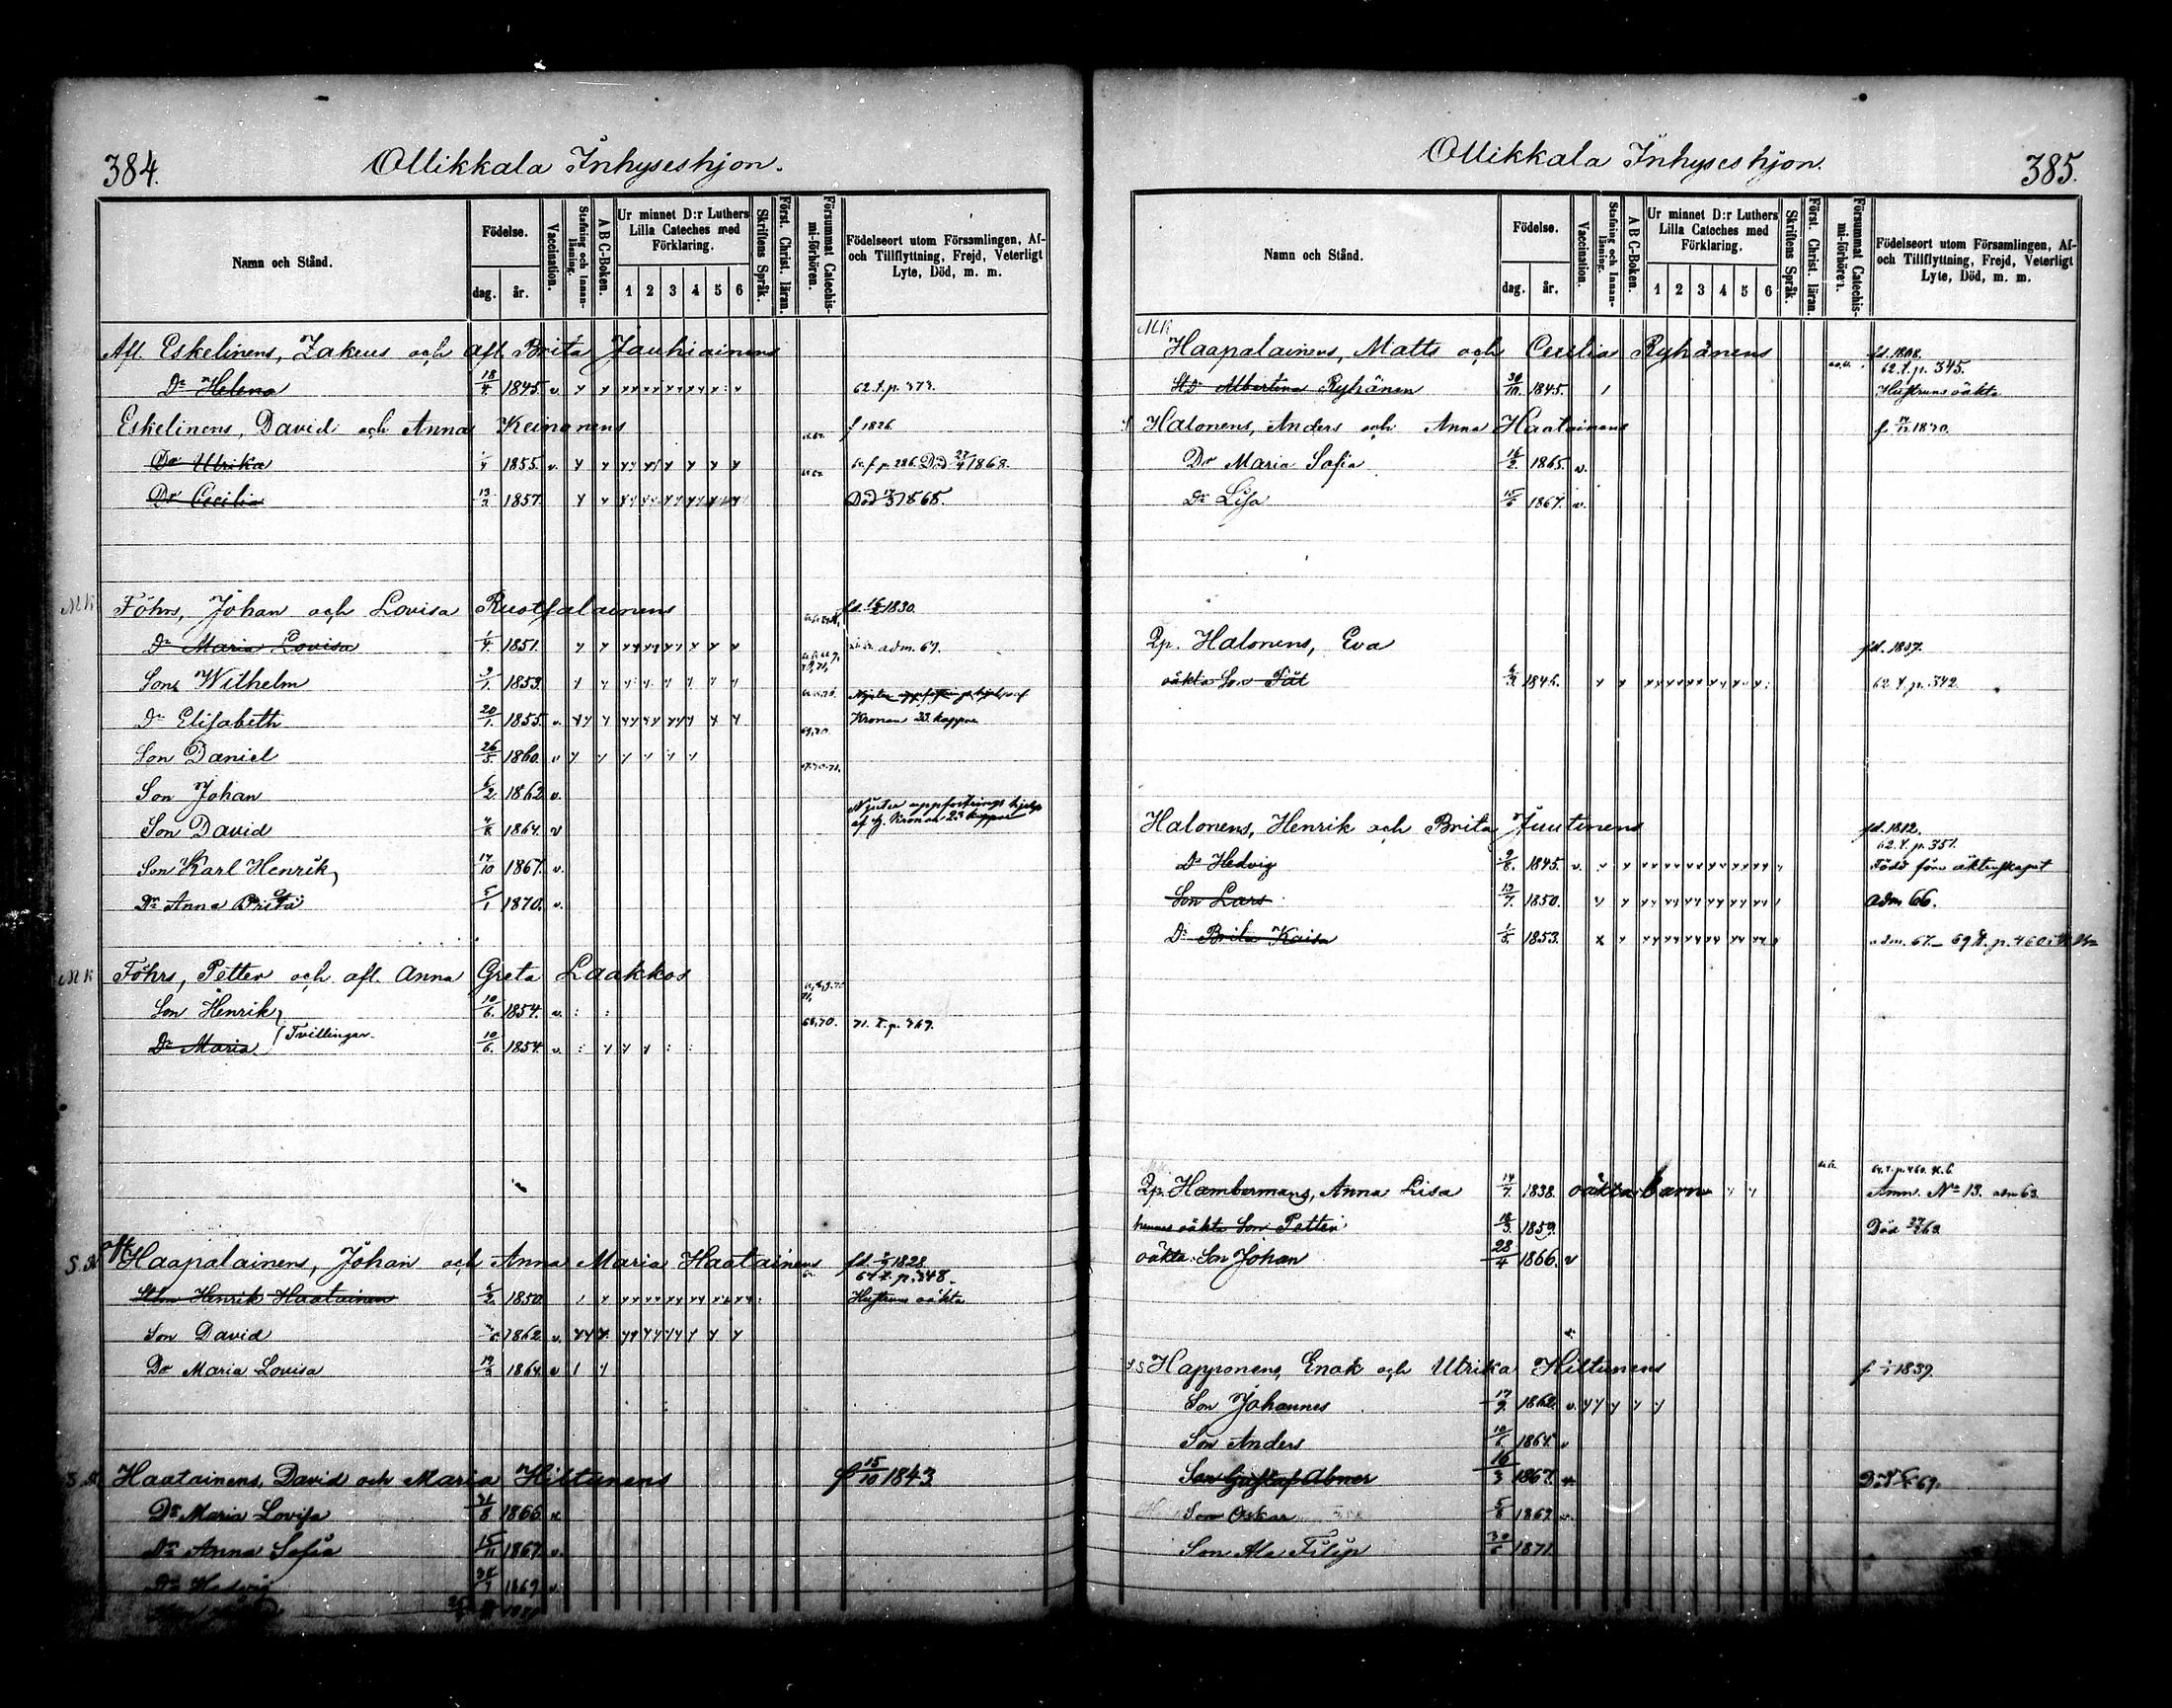 384.
Ollikkala Inhyseshjon.
Namn och Stånd.
Födelse.
dag.
år.
Vaccination.
Stafning och Innanläsning.
A B C-Boken.
Ur minnet D:r Luthers Lilla Cateches med Förklaring.
1 2 3 4 5 6
Skriftens Språk.
Först. Christ. läran.
Försummat Catechismi-förhören.
Födelseort utom Församlingen, Af- och Tillflyttning, Frejd, Veterligt Lyte, Död, m. m.
Afl. Eskelinens, Zakeus och afl. Brita Jauhiainens
Dr Helena 18/4 1845. v. 62.f.p. 373.
Eskelinens, David och Anna Keinonens f 1826
Dr Ulrika 1855. v. Död 1868.
Dr Cecilia 13/3 1857. Död 1868.
MK Föhrs, Johan och Lovisa Ruotsalainens 1830.
Dr Maria Lovisa 1/4 1851. adm. 69.
Son Wilhelm 3/1 1853.
Dr Elisabeth 20/1. 1855. v. Kronan 23 kappor
Son Daniel 26/5 1860. v
Son Johan 6/2 1862 v.
Son David 4/8 1864. v Njuter uppfostrings hjelp af h. Kronan 23 kappor
Son Karl Henrik, 14/10 1867. v.
Dr Anna Brita 5/1 1870. v.
MK Föhrs, Petter och afl. Anna Greta Laakkos
Son Henrik, 10/6. 1854. v.
Tvillingar.
Dr Maria 10/6. 1854. v. 68,70. 71.f.p. 369.
Haapalainens, Johan och Anna Maria Haatainens 1828
p. 348.
Henrik Haatainen 6/2. 1850 Hustruns oäkta
Son David 1862 v.
Dr Maria Lovisa 19/3 1864 v
Haatainens, David och Maria Hiltunens f 15/10 1843
Dr Maria Lovisa 31/8 1866
Dr Anna Sofia 15/11 1867 v.
Dr Hedvig 1869 v.
385.
Ollikkala Inhyseshjon.
Namn och Stånd.
Födelse.
dag.
år.
Vaccination.
Stafning och Innanläsning.
A B C-Boken.
Ur minnet D:r Luthers Lilla Cateches med Förklaring.
1 2 3 4 5 6
Skriftens Språk.
Först. Christ. läran.
Försummat Catechismi-förhören.
Födelseort utom Församlingen, Af- och Tillflyttning, Frejd, Veterligt Lyte, Död, m. m.
MK
Haapalainens, Matts och Cecilia Ryhänens fd. 1808.
62.f.p. 345.
Albertina Ryhänen 30/10. 1845. Hustruns oäkta
Halonens, Anders och Anna Haatainens
Dr Maria Sofia 16/2. 1865. v.
Dr Lisa 1867. v.
Qp. Halonens, Eva fd. 1807.
oäkta Son Pål 1846. 62.f.p. 342.
Halonens, Henrik och Brita Juutinens fd. 1812.
62.f.p. 351.
Dr Hedvig 9/8. 1845. v. Född före äktenskapet
Son Lars 13/7. 1850. adm. 66.
Dr Brita Kaisa 1/5. 1853. adm. 67.
Qp. Hambermans, Anna Lisa 14/7. 1838. oäkta barn Anm. No 13. adm 63
hennes oäkta Son Petter 18/3 1859. Död
oäkta Son Johan 28/4 1866. v
Happonens, Enok och Ulrika Hiltunens 1839.
Son Johannes 17/9 1862. v.
Son Anders 10/6. 1864. v
Son Gustaf Abner 16/3 1867.
Son Oskar 5/8 1869. v.
Son Ale Filip 1871